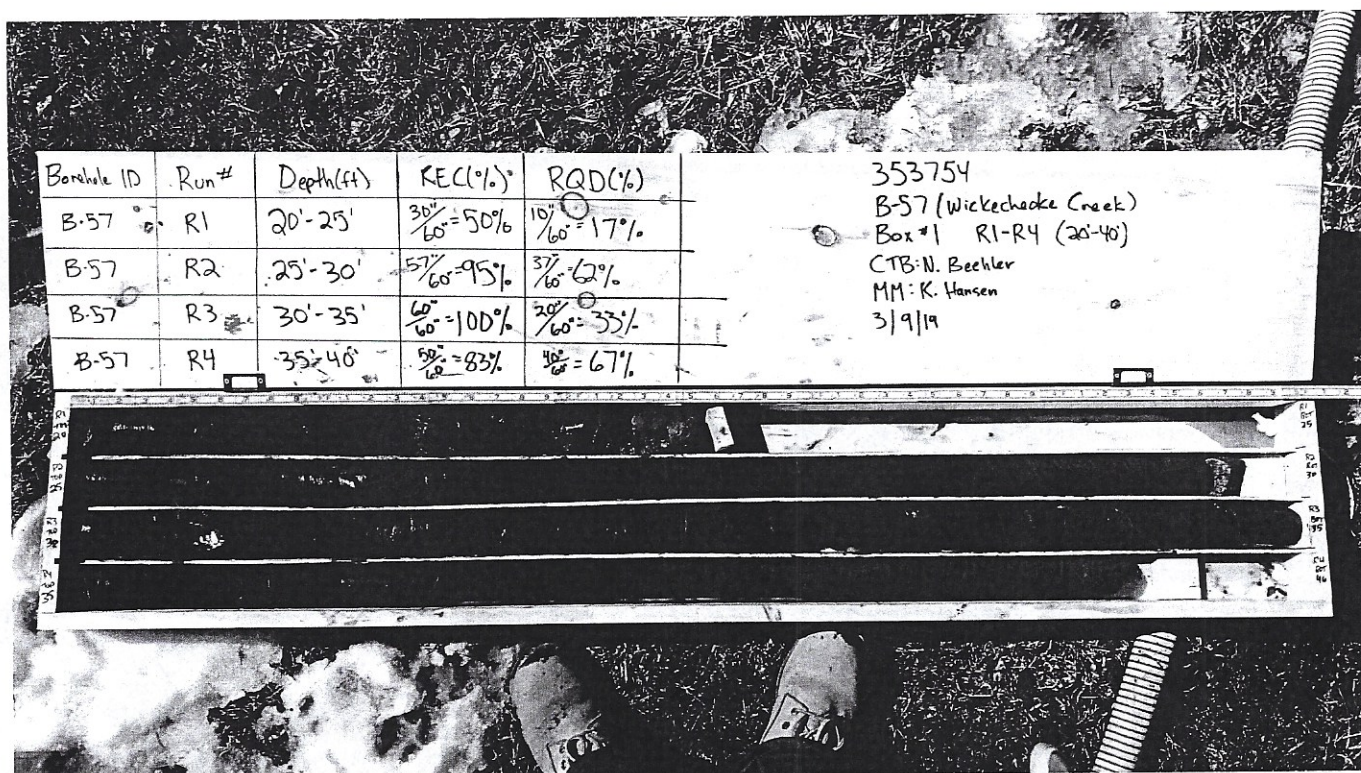 Borehole ID Run # Depth(ft) REC(%) RQD(%)
B-57 R1 20'-25' 30"/60"=50% 10"/60"=17%
B-57 R2 25'-30' 57"/60"=95% 37"/60"=62%
B-57 R3 30'-35' 60"/60"=100% 20"/60"=33%
B-57 R4 35'-40' 50"/60"=83% 40"/60"=67%
353754
B-57 (Wickecheoke Creek)
Box #1 R1-R4 (20'-40')
CTB: N. Beehler
MM: K. Hansen
3/9/19
R1
25
R2
30
R3
35